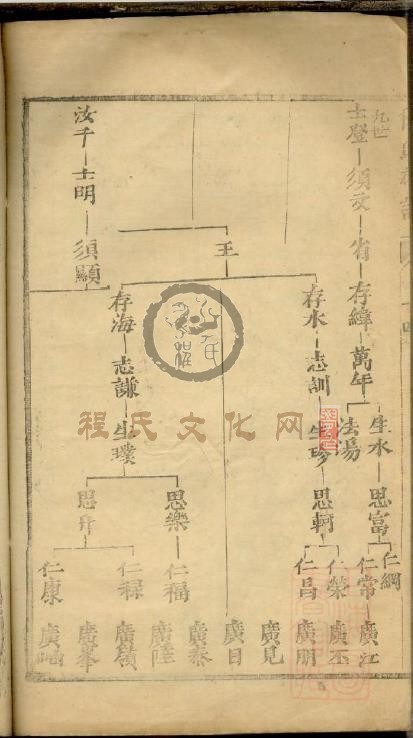 九世
士登 須文 省 存緯 萬年
生水 思富 仁綱
仁常 廣江
法易
王
存水 志訓 生珍 思軻 仁榮 廣丕
仁昌 廣明
廣見
廣目
廣泰
存海 志謙 生璞 思樂 仁福 廣陸
思丹 仁祿 廣嶺
廣峯
仁康
汝千 士明 須顯
程氏文化网